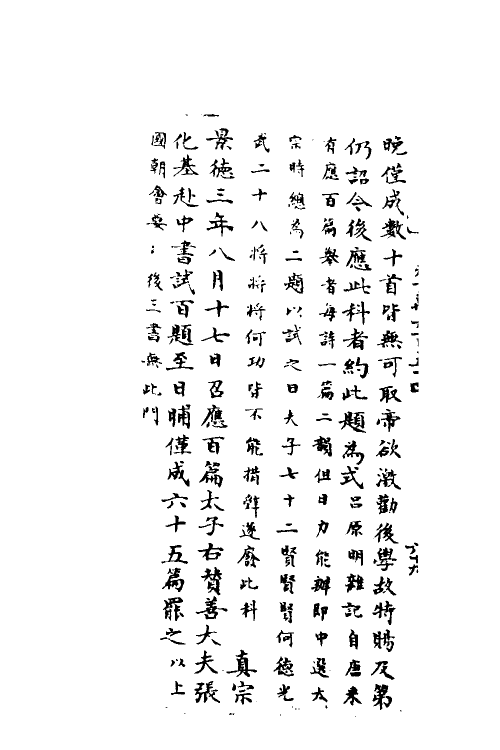 晚僅成數十首皆無可取帝欲激勸後學故特賜及第
仍詔今後應此科者約此題為式呂原明雜記自唐来
有應百篇舉者每詩一篇二韻但日力能辦即中選太
宗時總為二題以試之曰夫子七十二賢賢賢何德光
武二十八将将将何功皆不能措辭遂廢此科　真宗
景徳三年八月十七日召應百篇太子右賛善大夫張
化基赴中書試百題至日晡僅成六十五篇罷之以上
國朝會要：後三書無此門